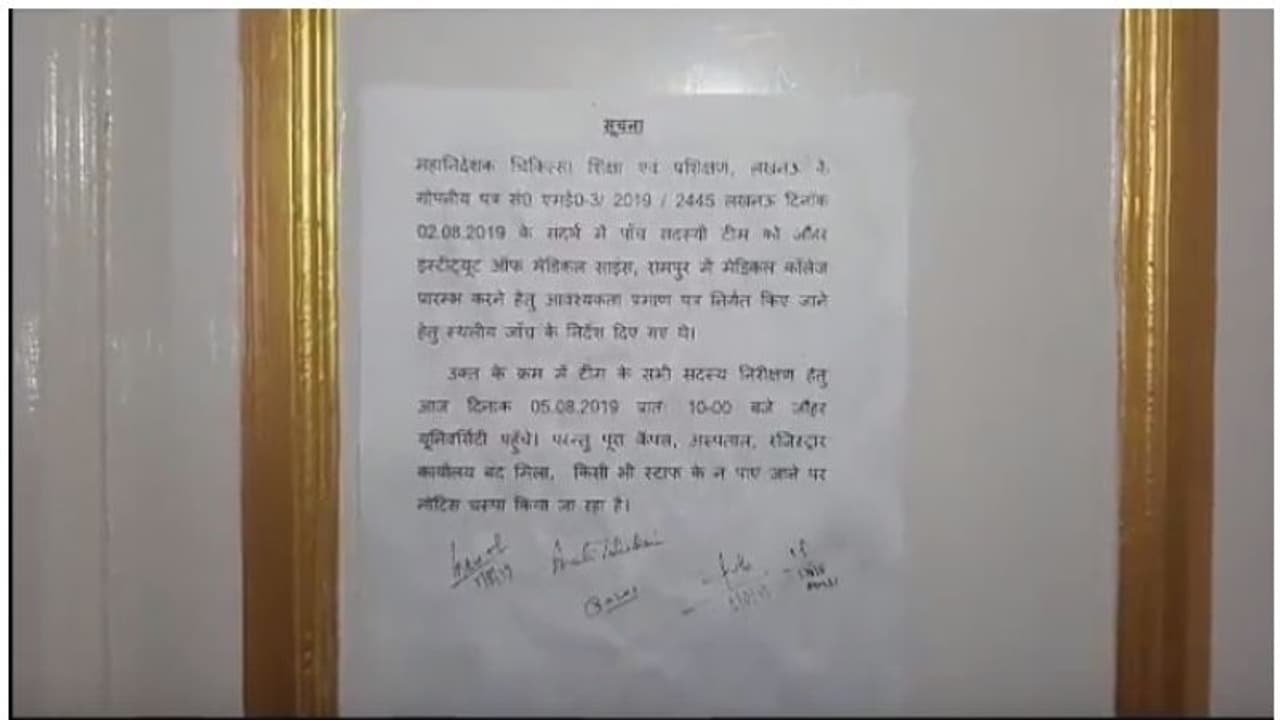 सूचना
महानिदेशक चिकित्सा शिक्षा एवं प्रशिक्षण, लखनऊ के
गोपनीय पत्र सं0 एमई0-3/ 2019 / 2445 लखनऊ दिनॉक
02.08.2019 के संदर्भ में पॉच सदस्यी टीम को जौहर
इस्टीट्यूट ऑफ मेडिकल साइंस, रामपुर में मेडिकल कॉलेज
प्रारम्भ करने हेतु आवश्यकता प्रमाण पत्र निर्गत किए जाने
हेतु स्थलीय जॉच के निर्देश दिए गए थे।
उक्त के क्रम में टीम के सभी सदस्य निरीक्षण हेतु
आज दिनांक 05.08.2019 प्रातः 10-00 बजे जौहर
यूनिवर्सिटी पहुँचे। परन्तु पूरा कैंपस, अस्पताल, रजिस्ट्रार
कार्यालय बंद मिला, किसी भी स्टाफ के न पाए जाने पर
नोटिस चस्पा किया जा रहा है।